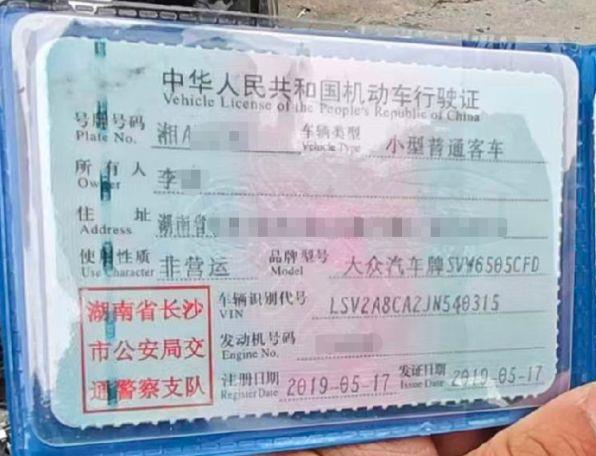 中华人民共和国机动车行驶证
Vehicle License of the People's Republic of China
号牌号码 湘A 车辆类型 小型普通客车
Plate No. Vehicle Type
所有人 李
Owner
住址 湖南省
Address
使用性质 非营运 品牌型号 大众汽车牌SVW6505CFD
Use Character Model
湖南省长沙 车辆识别代号 LSV2A8CA2JN540315
VIN
市公安局交 发动机号码
Engine No.
通警察支队 注册日期 2019-05-17 发证日期 2019-05-17
Register Date Issue Date